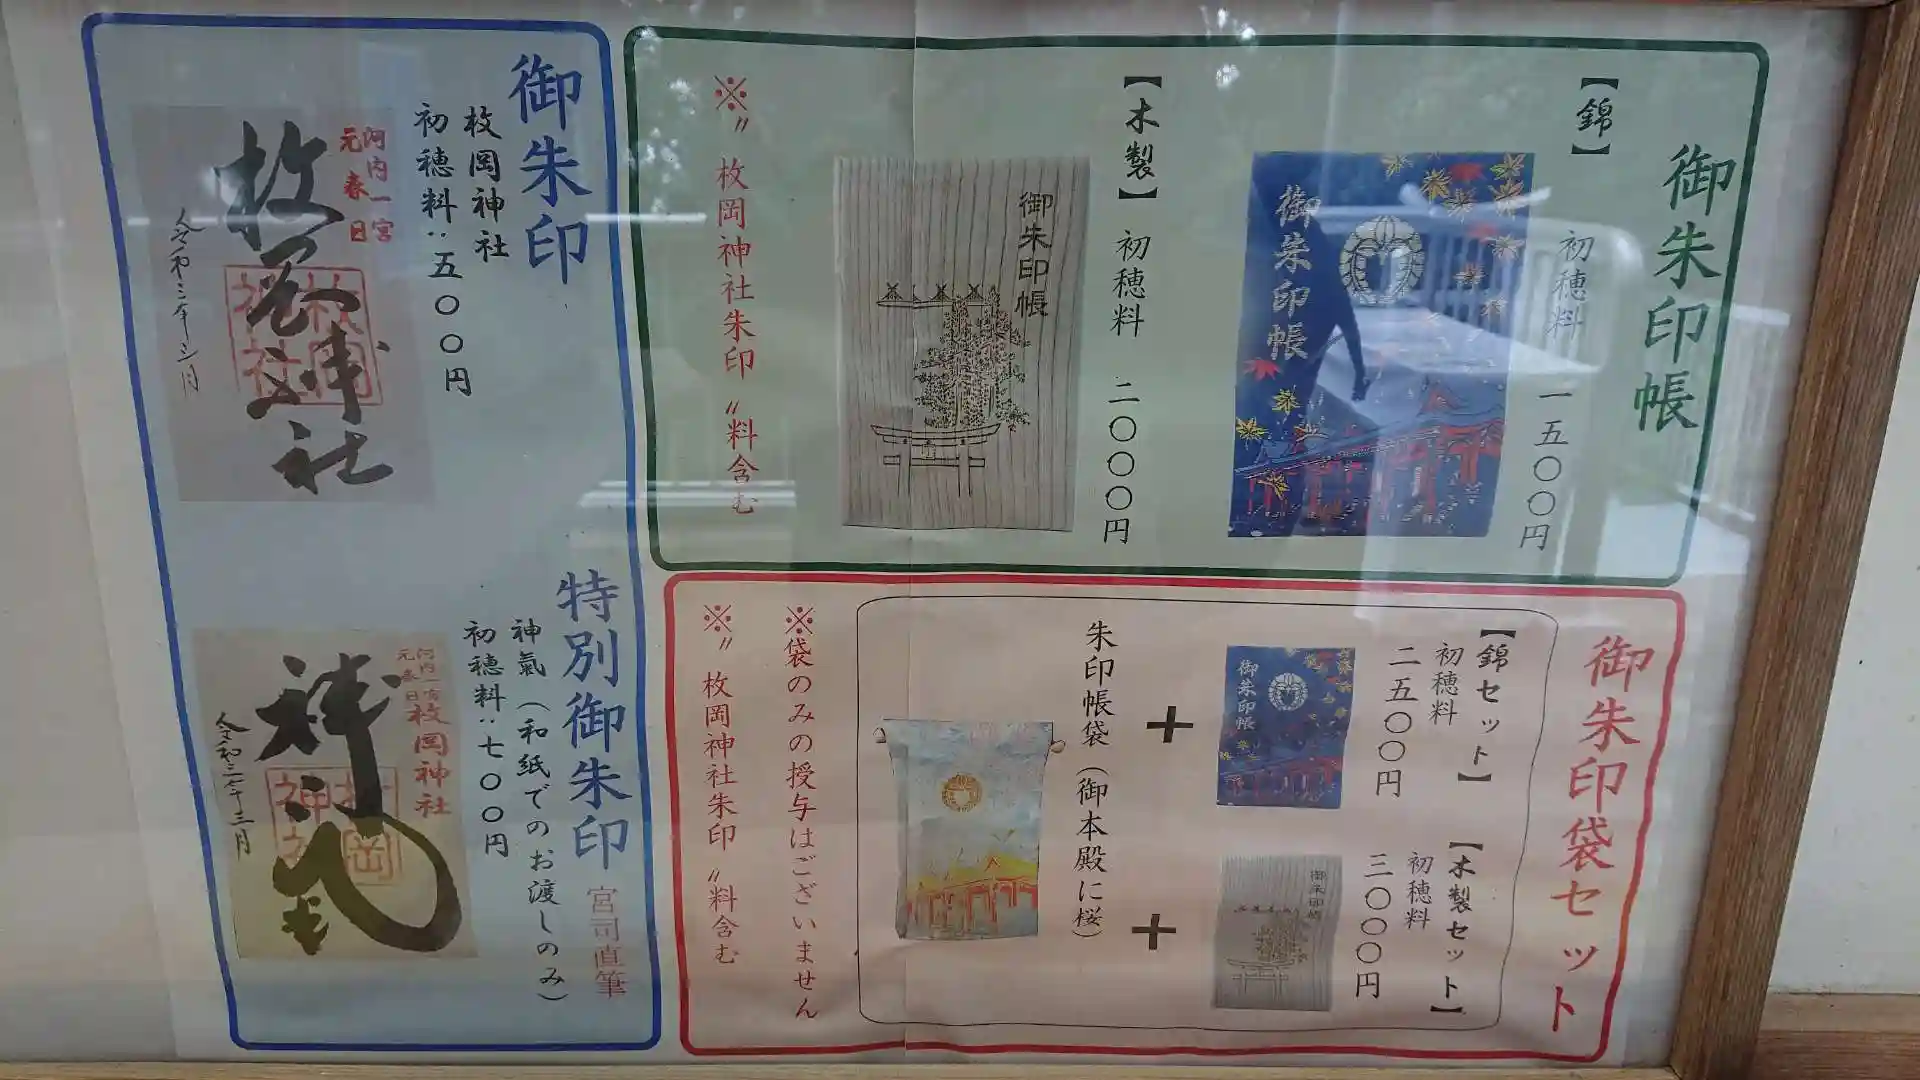 御朱印帳
【錦】 初穂料 一五〇〇円
御朱印帳
【木製】 初穂料 二〇〇〇円
御朱印帳
※〝枚岡神社朱印〟料含む
御朱印袋セット
【錦セット】
初穂料
二五〇〇円
御朱印帳
【木製セット】
初穂料
三〇〇〇円
御朱印帳
+
+
朱印帳袋(御本殿に桜)
※袋のみの授与はございません
※〝枚岡神社朱印〟料含む
御朱印
枚岡神社
初穂料:五〇〇円
河内一宮
元春日
枚岡神社
枚岡神社
令和三年三月
特別御朱印 宮司直筆
神氣(和紙でのお渡しのみ)
初穂料:七〇〇円
河内一宮
元春日
枚岡神社
神氣
枚岡神社
令和三年三月